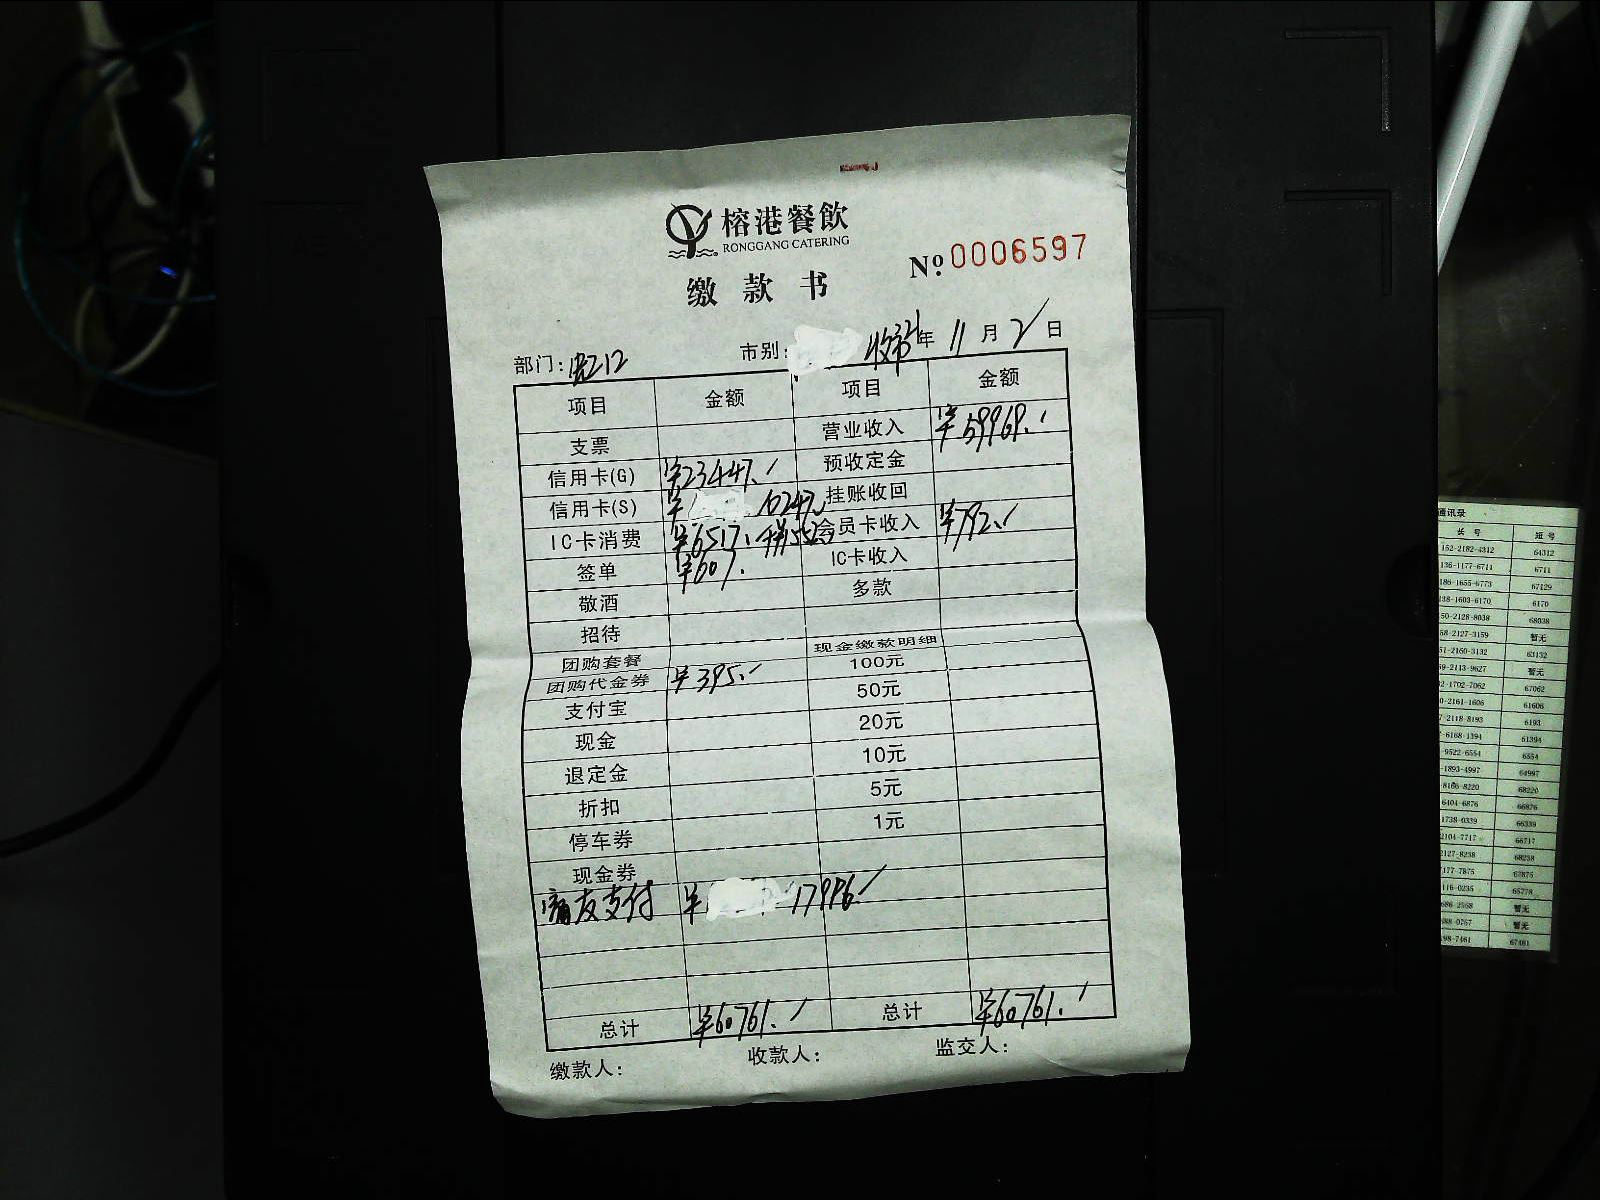 榕港餐飲
RONGGANG CATERING
缴款书
№ 0006597
部门: 虹12 市别: 收市 年 11 月 2 日
项目 金额 项目 金额
支票 营业收入 ¥59969.
信用卡(G) ¥23447. 预收定金
信用卡(S) ¥ 10247. 挂账收回
IC卡消费 ¥6517. 会员卡收入 ¥792.
签单 ¥607. IC卡收入
敬酒 多款
招待
团购套餐 现金缴款明细
团购代金券 ¥395. 100元
支付宝 50元
现金 20元
退定金 10元
折扣 5元
停车券 1元
现金券
友支付 ¥ 17986.
总计 ¥60761. 总计 ¥60761.
缴款人: 收款人: 监交人:
通讯录
长号 短号
152-2182-4312 64312
136-1177-6711 6711
186-1655-6773 67129
138-1603-6170 6170
50-2128-8038 68038
58-2127-3159 暂无
51-2160-3132 63132
59-2113-9627 暂无
2-1702-7062 67062
0-2161-1606 61606
7-2118-8193 6193
-6168-1394 61394
-9522-6554 6554
-1893-4997 64997
-8166-8220 68220
6404-6876 66876
1738-0339 66339
2104-7717 66717
2127-8238 68238
177-7875 67875
116-0235
暂无
暂无
98-7461 67461